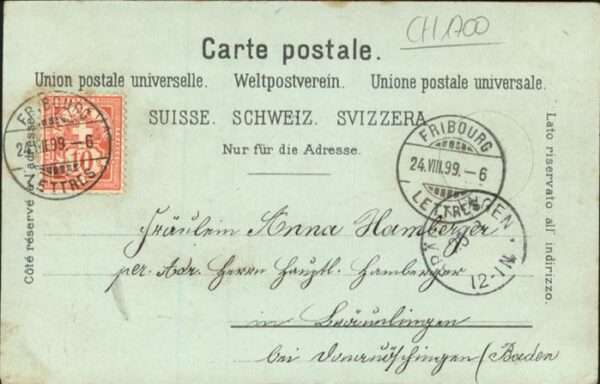 CH 1700
Carte postale.
Union postale universelle. Weltpostverein. Unione postale universale.
SUISSE. SCHWEIZ. SVIZZERA.
Nur für die Adresse.
Côté réservé à l'adresse.
Lato riservato all' indirizzo.
FRIBOURG
24.VIII.99.–6
LETTRES
10
FRIBOURG
24.VIII.99.–6
LETTRES
BRÄUNLINGEN
12-1N
Fräulein Anna Hamberger
per. Adr. Herrn Hauptl. Hamberger
in Bräunlingen
bei Donauöschingen (Baden